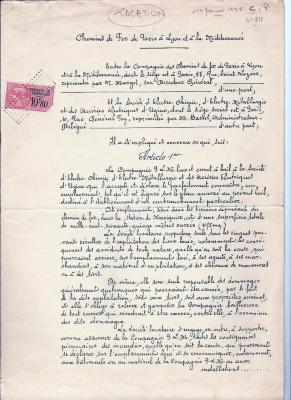 LOCATION
1er Janvier 1928 C.P
Chemins de Fer de Paris à Lyon et à la Méditerranée
Entre la Compagnie des Chemins de Fer de Paris à Lyon
et à la Méditerranée, dont le siège est à Paris, 88, Rue Saint-Lazare,
représentée par M. Margot, son Directeur Général,
d'une part,
Et la Société d'Electro-Chimie, d'Electro-Métallurgie
et des Aciéries Electriques d'Ugine, dont le siège social est à Paris,
10, Rue Général Foy, représentée par M. Administrateur-
Délégué d'autre part,
Il a été expliqué et convenu ce qui suit:
Article 1er
La Compagnie P.L.M. loue et consent à bail à la Société
d'Electro-Chimie, d'Electro-Métallurgie et des Aciéries Electriques
d'Ugine qui l'accepte et déclare le parfaitement connaître, un
emplacement, tel qu'il est figuré sur le plan annexé au présent bail,
destiné à l'établissement d'un embranchement particulier.
Cet emplacement, situé dans les terrains dépendant du
chemin de fer, dans la Station de a une superficie totale
de mille-cent-soixante-quinze mètres carrés
La Société locataire supportera seule tous les risques pou-
vant résulter de l'exploitation des lieux loués, notamment les consé-
quences des accidents de toute nature, quelle qu'en soit la cause, qui
pourraient arriver, sur l'emplacement loué, à ses agents, à ses mar-
chandises, à son matériel d'exploitation, à ses animaux de manœuvres
ou à des tiers.
De même, elle sera seule responsable des dommages
généralement quelconques qui pourraient être causés, par le fait
de la dite exploitation, soit aux tiers, soit aux propriétés voisines,
et elle s'oblige à relever et garantir la Compagnie
de tout recours qui viendrait à être exercé, contre elle, à l'occasion
des dits dommages.
La Société locataire s'engage, en outre, à supporter,
comme assureur de la Compagnie P.L.M. les conséquences
pécuniaires des incendies, quelle qu'en soit la cause, qui pourraient
se déclarer sur l'emplacement loué et se communiquer, notamment,
aux bâtiments ou au matériel de la Compagnie P.L.M. ou aux
installations